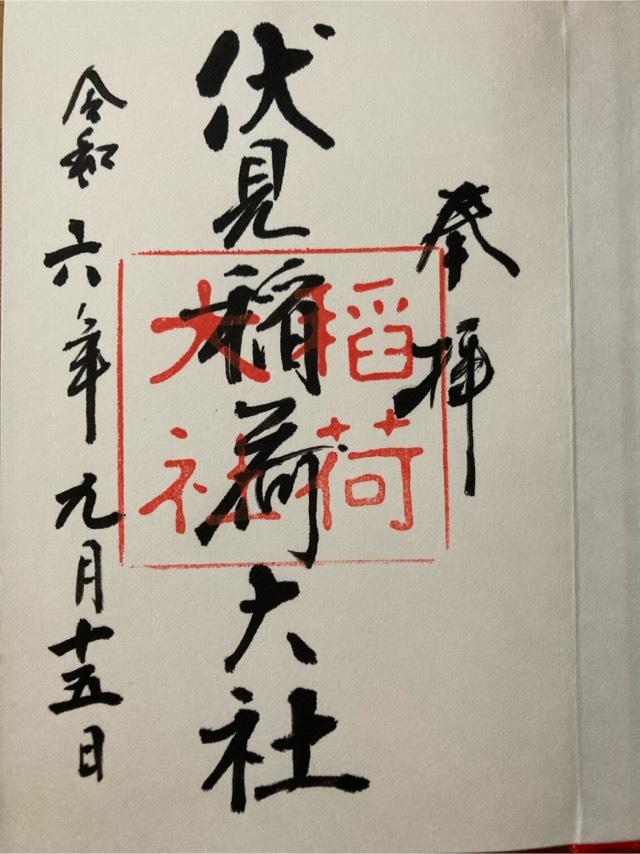 奉拝
伏見稲荷大社
稲荷
大社
令和六年九月十五日